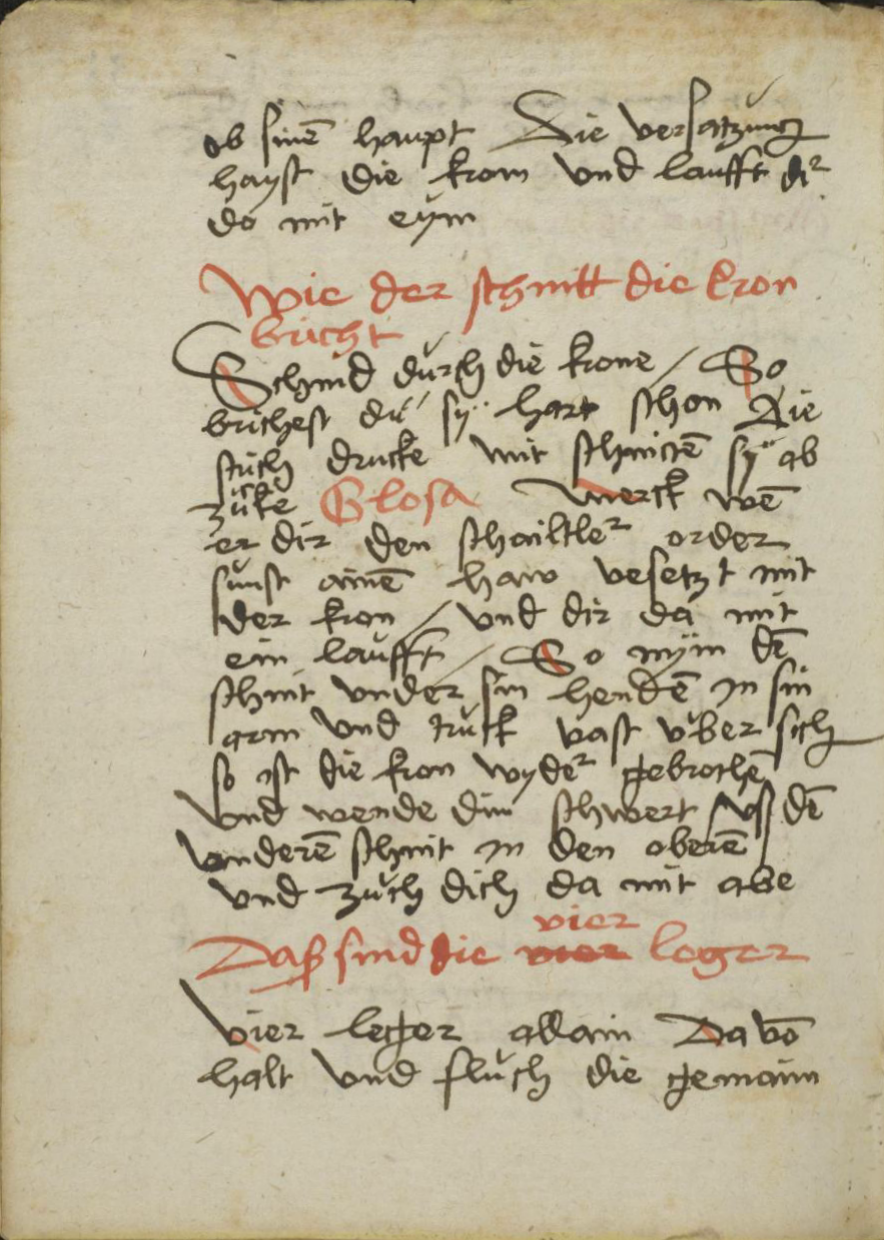 ob sinē haupt Die versatzung
hayst die kron vnd laufft dir
do mit eÿm
Wie der schnitt die kron
bricht
Schnid durch die krone / So
brichest du sÿ hart schon Die
stich drucke mit schnittē sÿ ab
zuͦke Glosa Merck wē
er dir den schaittler order
sunst ainē haw vesetzt mit
der kron / vnd dir da mit
ein laufft / So nÿm dē
schnit vnder sin hendē In sin
arm vnd truck vast vber sich
so ist die kron wyder gebrochē
vnd wende din schwert vß dē
vnderē schnit in den oberē
vnd zuͦch dich da mit abe
vier
Daß sind die vier leger
Vier leger allain Da vō
halt vnd fluch die gemain